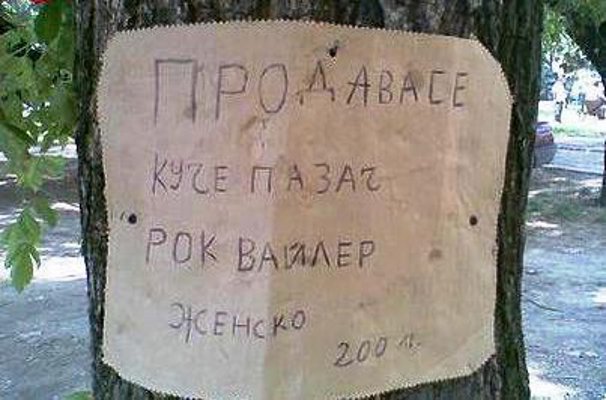 ПРОДАВАСЕ
КУЧЕ ПАЗАЧ
РОК ВАЙЛЕР
ЖЕНСКО
200 л.